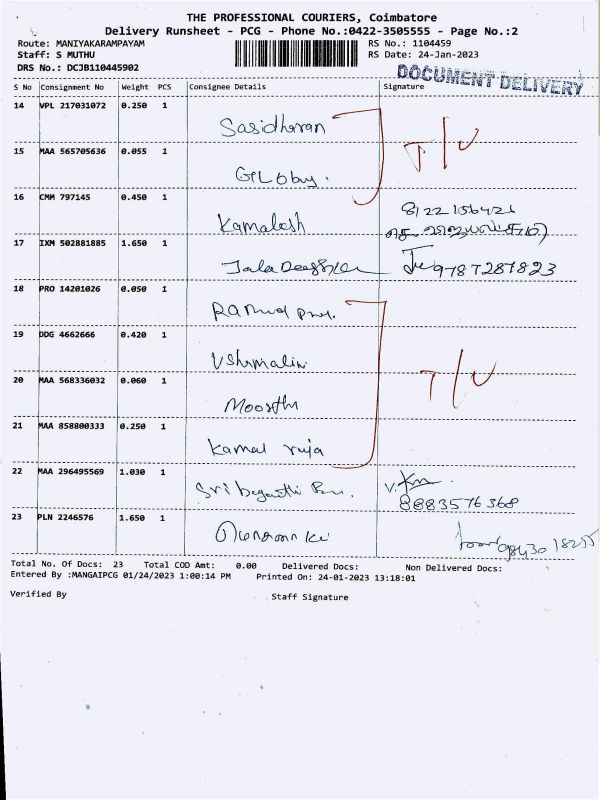 THE PROFESSIONAL COURIERS, Coimbatore
Delivery Runsheet - PCG - Phone No.:0422-3505555 - Page No.:2
Route: MANIYAKARAMPAYAM RS No.: 1104459
Staff: S MUTHU RS Date: 24-Jan-2023
DRS No.: DCJB110445902
DOCUMENT DELIVERY
S No Consignment No Weight PCS Consignee Details Signature
14 VPL 217031072 0.250 1
Sasidharan
T/U
15 MAA 565705636 0.055 1
16 CMM 797145 0.450 1
Kamalesh 8122156421
17 IXM 502881885 1.650 1
9787287823
18 PRO 14201026 0.050 1
19 DDG 4662666 0.420 1
T/U
20 MAA 568336032 0.060 1
Moorthi
21 MAA 858800333 0.250 1
Kamal raja
22 MAA 296495569 1.030 1
Sri
8883576368
23 PLN 2246576 1.650 1
Total No. Of Docs: 23 Total COD Amt: 0.00 Delivered Docs: Non Delivered Docs:
Entered By :MANGAIPCG 01/24/2023 1:00:14 PM Printed On: 24-01-2023 13:18:01
Verified By Staff Signature